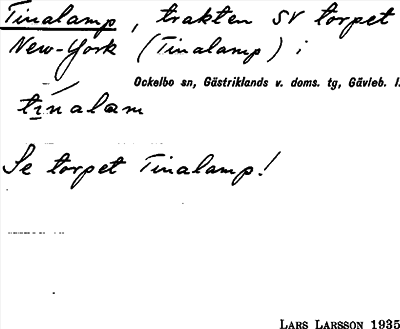 Tinalamp, trakten SV torpet
New-York (Tinalamp) i
Ockelbo sn, Gästriklands v. doms. tg, Gävleb. l.
tínalam
Se torpet Tinalamp!
LARS LARSSON 1935